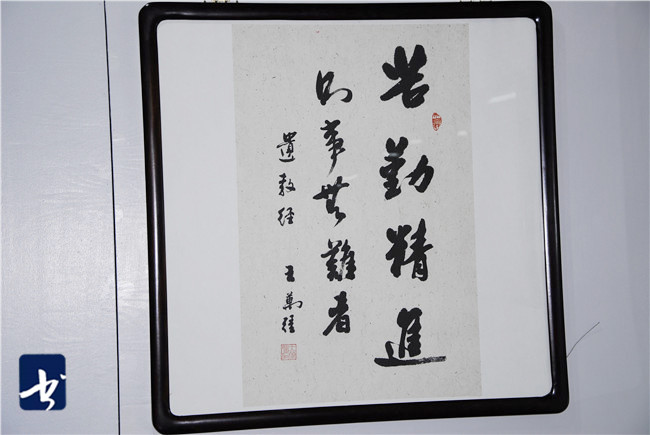 若勤精進
則事無難者
遺教經 王萬
书